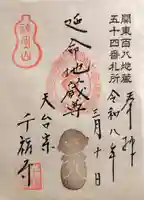 関東百八地蔵
五十四番札所
奉拝
令和八年
三月十日
延命地蔵尊
天台宗
千福寺